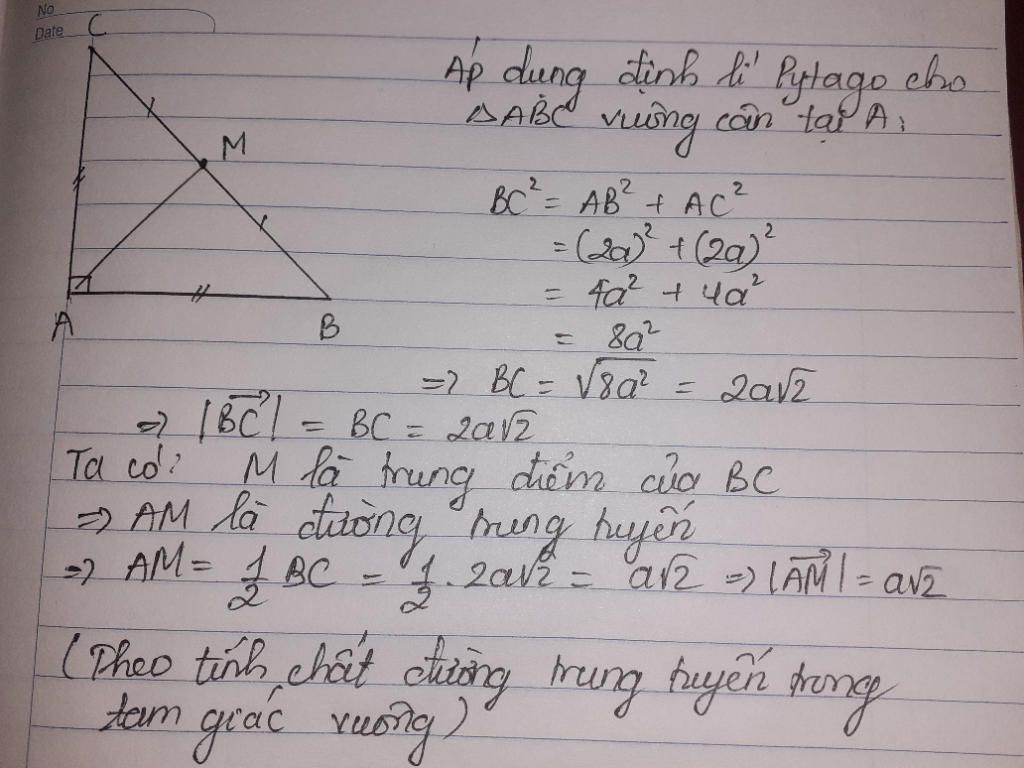 No
Date
C
M
A
B
Áp dụng định lí Pytago cho
△ABC vuông cân tại A:
BC² = AB² + AC²
= (2a)² + (2a)²
= 4a² + 4a²
= 8a²
=> BC = √8a² = 2a√2
=> |BC→| = BC = 2a√2
Ta có: M là trung điểm của BC
=> AM là đường trung tuyến
=> AM = 1/2 BC = 1/2 . 2a√2 = a√2 => |AM→| = a√2
(Theo tính chất đường trung tuyến trong
tam giác vuông)